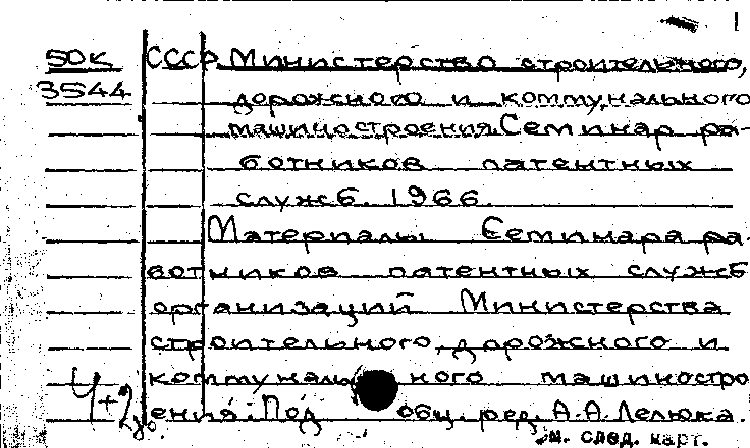 1
50К СССР Министерство строительного,
3544 дорожного и коммунального
машиностроения. Семинар ра-
ботников патентных
служб. 1966.
Материалы Семинара ра-
ботников патентных служб
организаций Министерства
строительного, дорожного и
коммунального машиностро
ения. Под общ. ред. А.А. Лелюка.
см. след. карт.